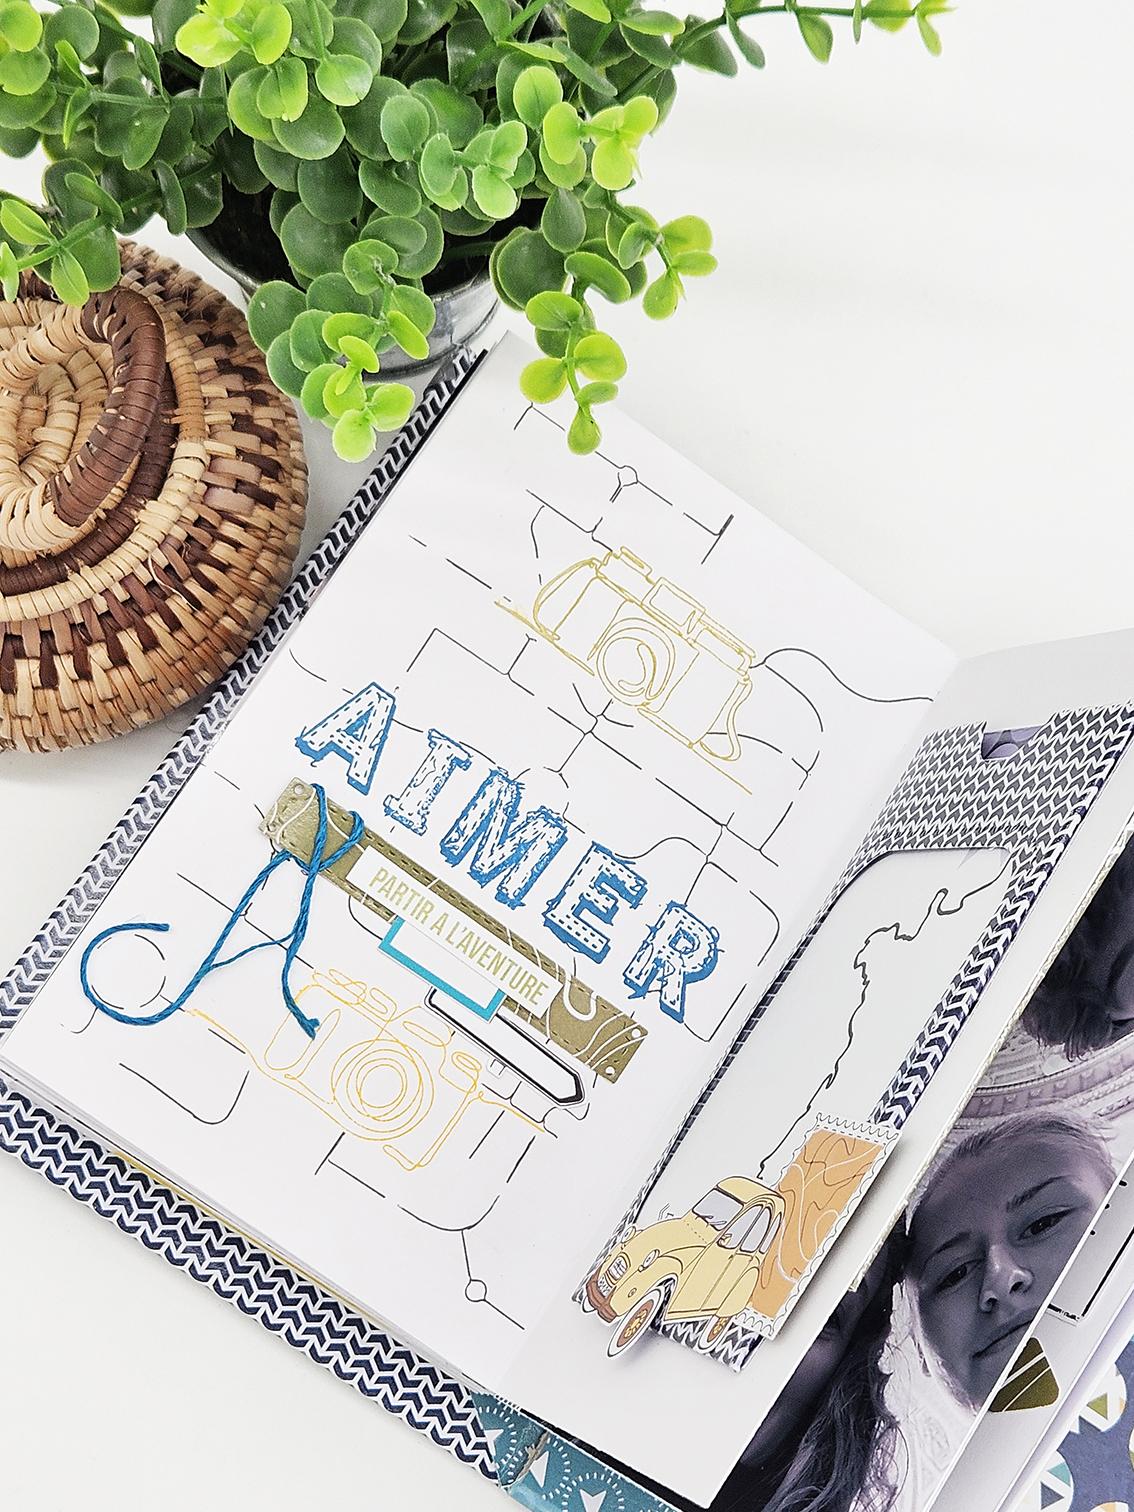 AIMER
PARTIR A L'AVENTURE